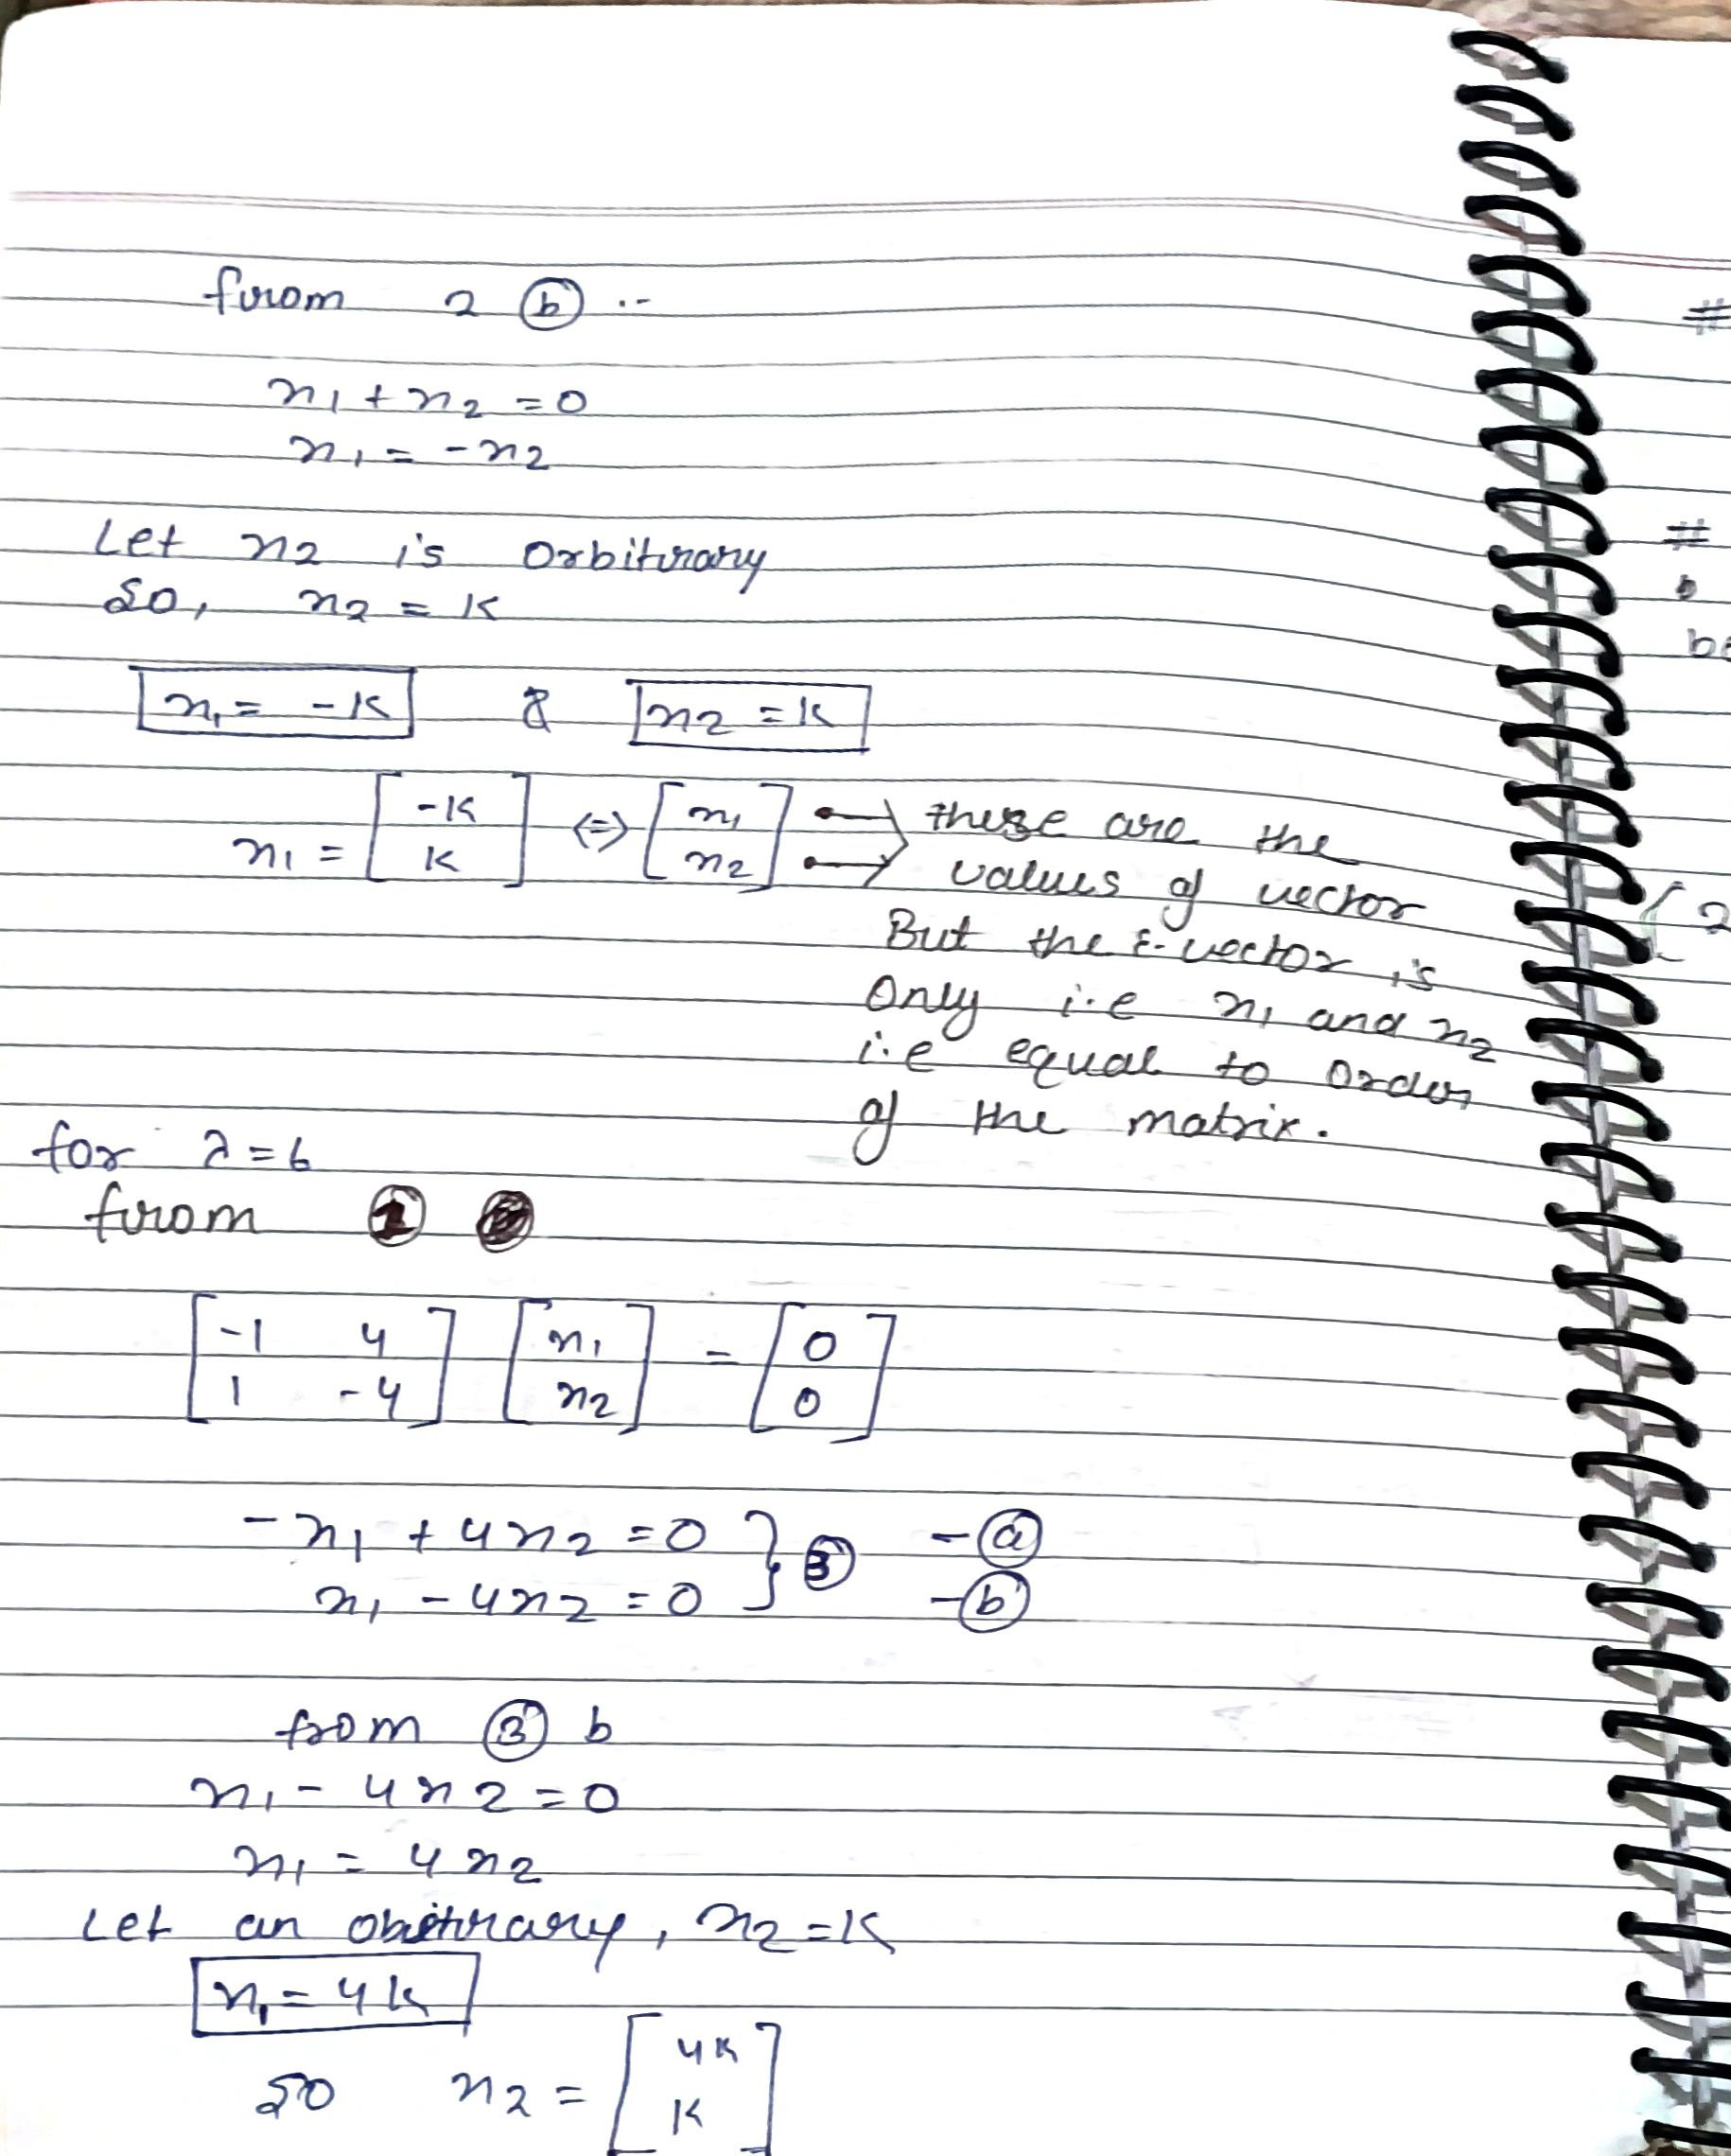 from 2 ⓑ :-
x₁ + x₂ = 0
x₁ = -x₂
Let x₂ is Orbitrary
So, x₂ = K
x₁ = -K & x₂ = K
x₁ = [-K K] <=> [x₁ x₂] these are the
values of vector
But the E-vector is
Only i.e x₁ and x₂
i.e equal to Order
of the matrix.
for λ = 6
from ①
[-1 4 1 -4] [x₁ x₂] = [0 0]
-x₁ + 4x₂ = 0 } ③ - ⓐ
x₁ - 4x₂ = 0 - ⓑ
from ③ b
x₁ - 4x₂ = 0
x₁ = 4x₂
Let an , x₂ = K
x₁ = 4K
so x₂ = [4K K]
#
#
2